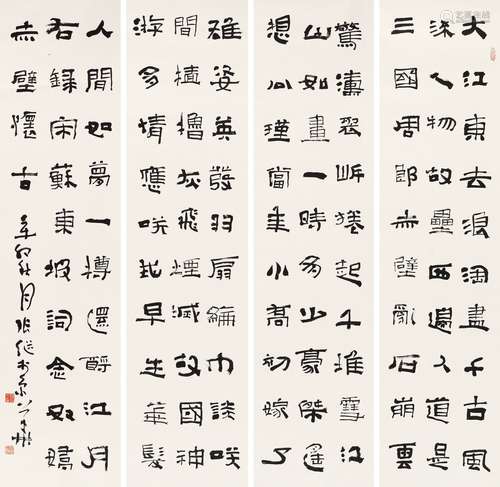 大江東去浪淘盡千古風
流人物故壘西邊人道是
三國周郎赤壁亂石崩雲
驚濤裂岸捲起千堆雪江
山如畫一時多少豪傑遙
想公瑾當年小喬初嫁了
雄姿英發羽扇綸巾談咲
間檣櫓灰飛煙滅故國神
游多情應咲我早生華髮
人間如夢一樽還酹江月
右錄宋蘇東坡詞念奴嬌
赤壁懷古